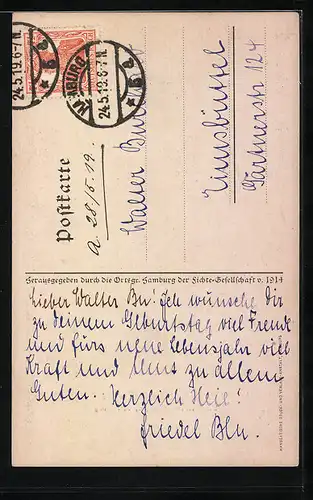 HAMBURG
24.5.19.6-7 N.
Postkarte
a. 28/5.19.
Walter
Eimsbüttel
Gärtnerstr 124
Herausgegeben durch die Ortsgr. Hamburg der Fichte-Gesellschaft v. 1914
Lieber Walter Bu! Ich wünsche Dir
zu deinem Geburtstag viel Freude
und fürs neue Lebensjahr viel
Kraft und Mut zu allem
Guten. Herzlich Heil!
Friedel Blu.